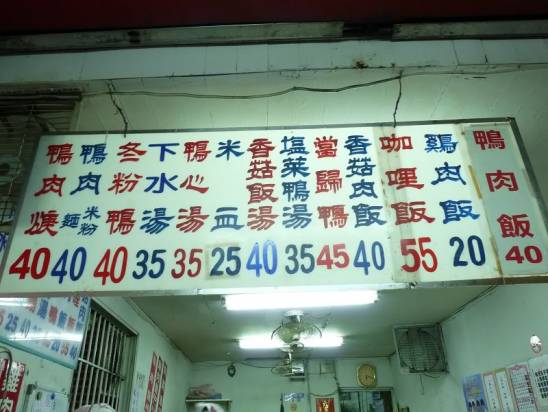 鴨肉飯 40
鷄肉飯 20
咖哩飯 55
香菇肉飯 40
當歸鴨 45
塩菜鴨湯 35
香菇飯湯 40
米血 25
鴨心湯 35
下水湯 35
冬粉鴨 40
鴨肉米粉麵 40
鴨肉焿 40